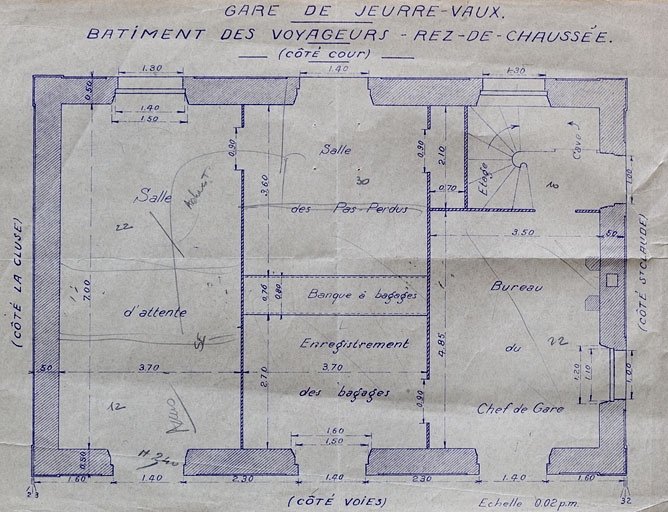 GARE DE JEURRE-VAUX.
BATIMENT DES VOYAGEURS - REZ-DE-CHAUSSÉE.
(CÔTÉ COUR)
1.30
1.40
1.30
0.50
1.40
1.50
0.90
0.90
2.10
Salle
Etage
Cave
1.00
Salle
30
10
0.70
3.60
des Pas-Perdus
22
3.50
50
(CÔTÉ LA CLUSE)
(CÔTÉ ST CLAUDE)
7.00
0.70
0.80
Banque à bagages
Bureau
d'attente
Enregistrement
4.85
du
22
50
3.70
3.70
1.20
1.10
1.00
2.70
des bagages
0.90
12
Chef de Gare
1.60
1.50
0.50
1.60
1.40
2.30
1.40
2.30
1.40
1.60
(CÔTÉ VOIES)
Echelle 0.02 p.m.
32